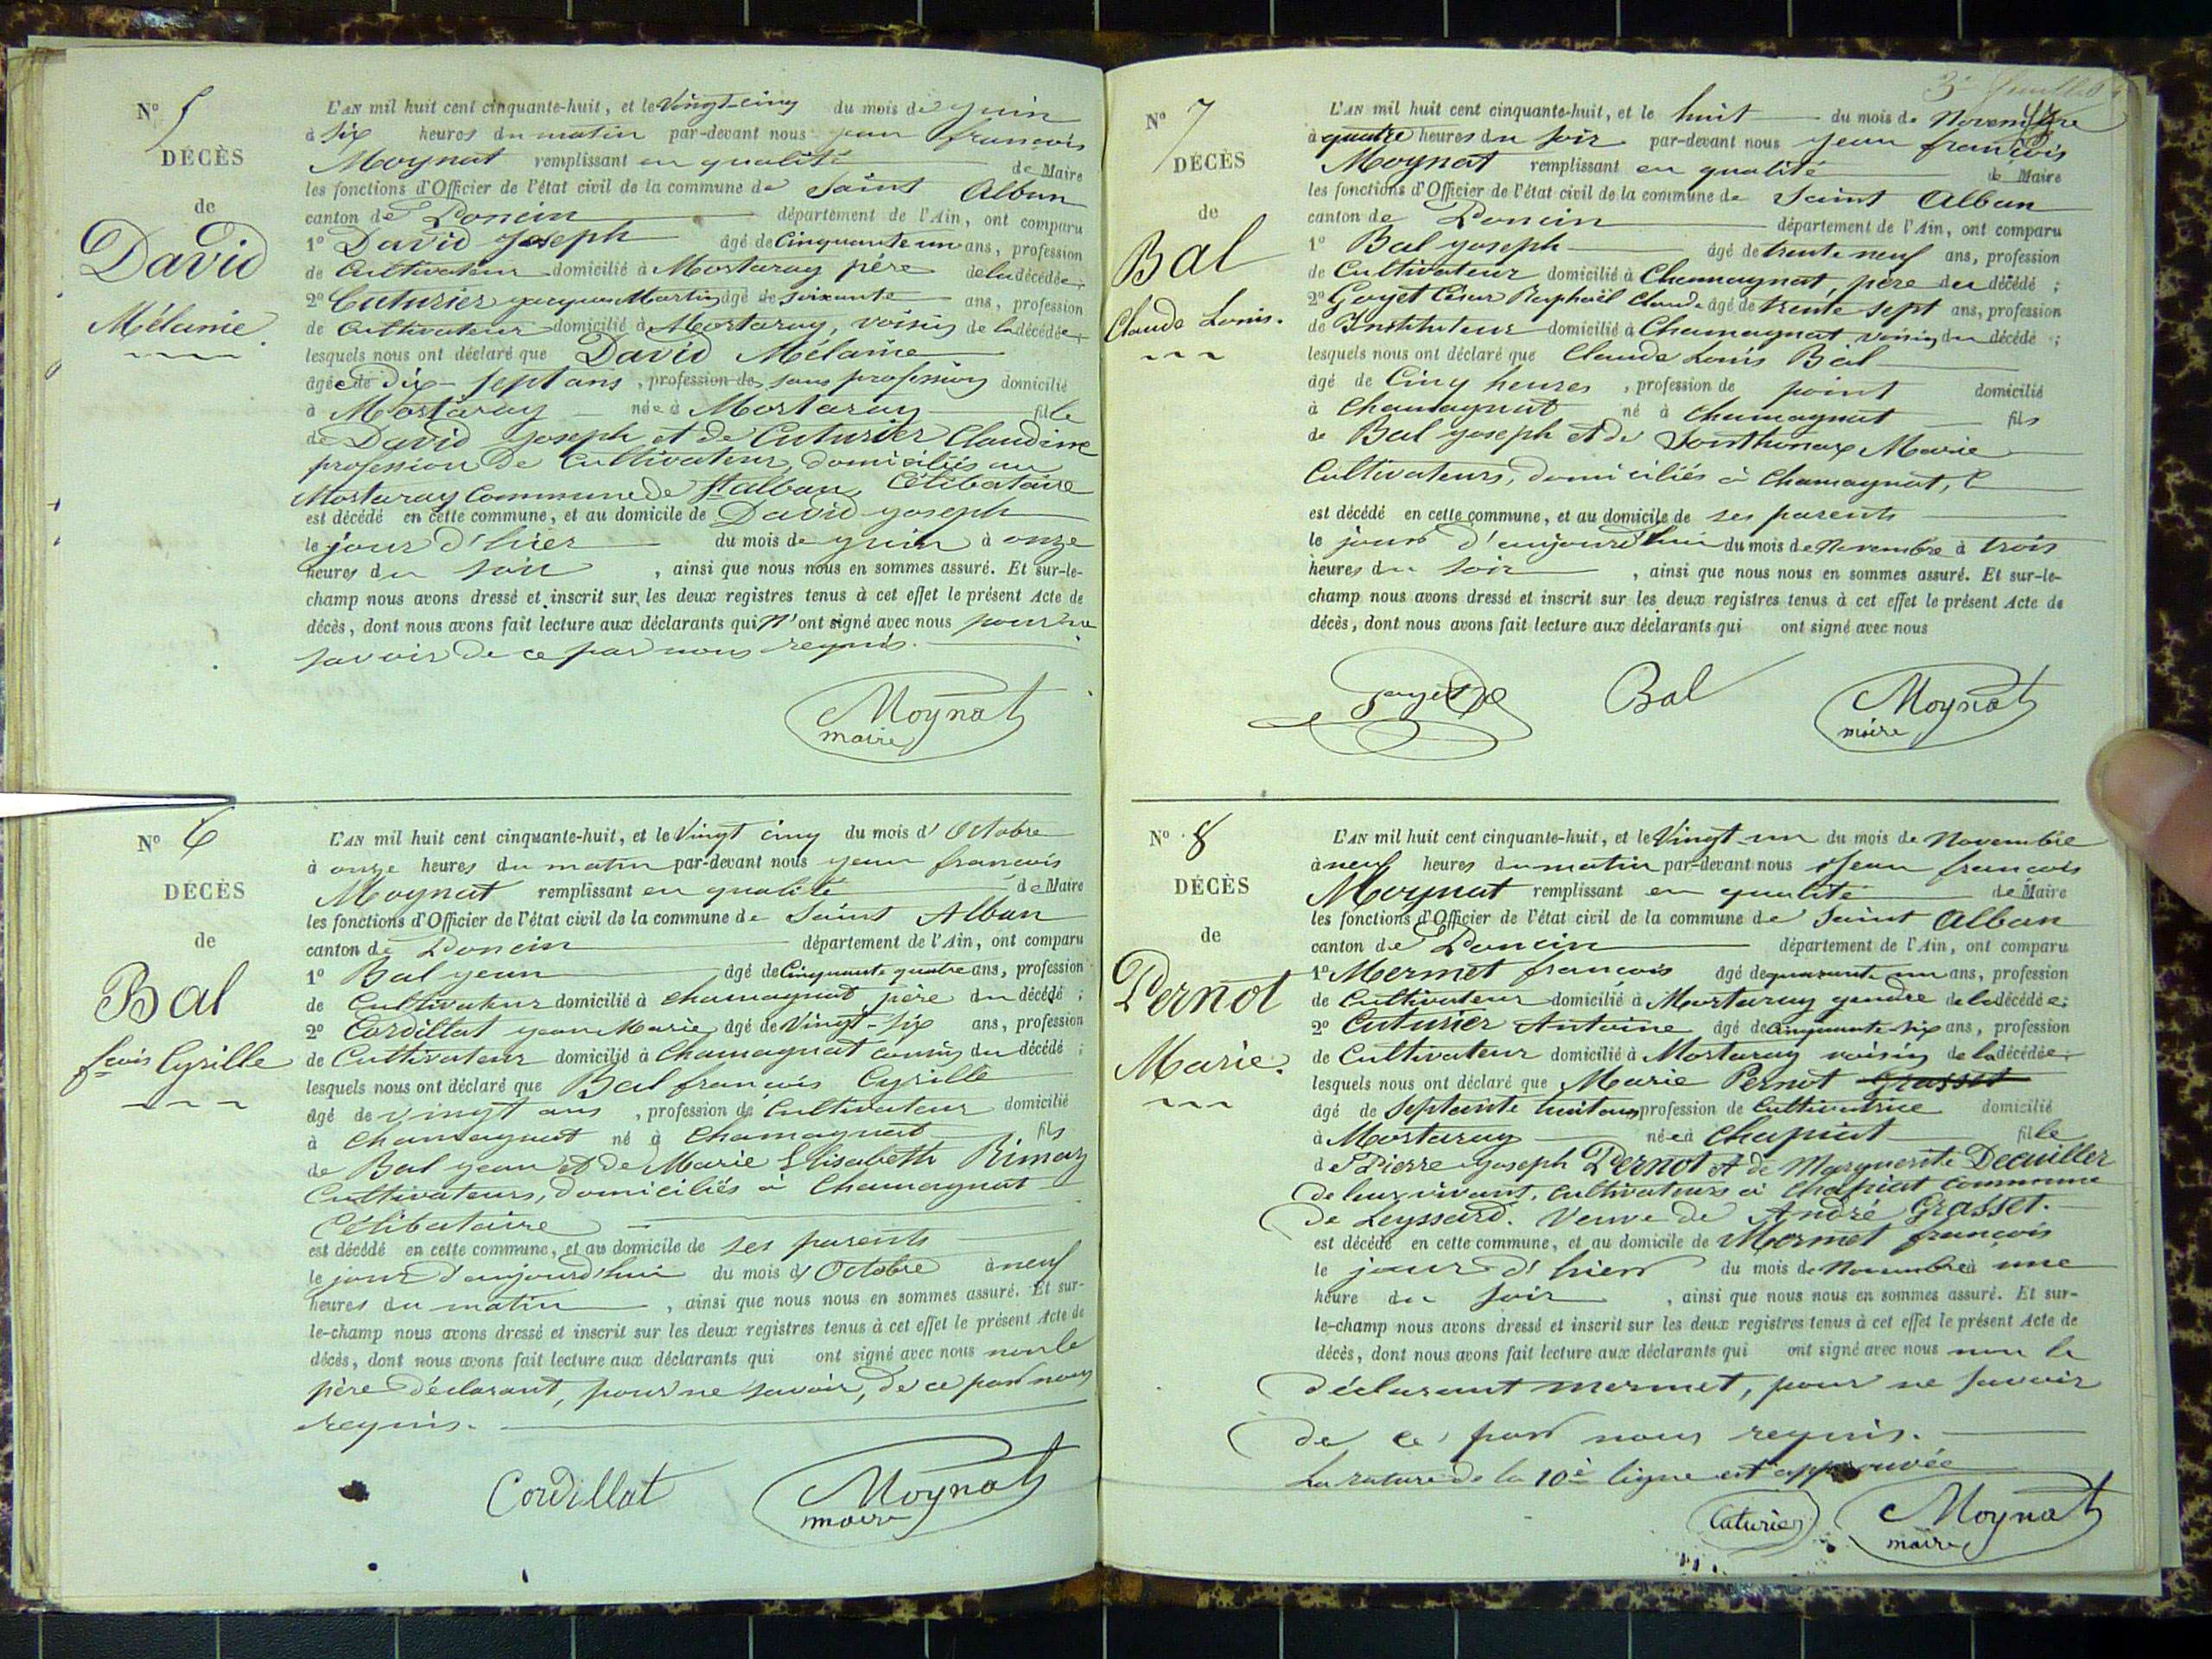 N° 5
DÉCÈS
de
David
Mélanie.
L'AN mil huit cent cinquante-huit, et le Vingt-cinq du mois de juin
à six heures du matin par-devant nous jean françois
Moynat remplissant en qualité de Maire
les fonctions d'Officier de l'état civil de la commune de Saint Alban
canton de Poncin département de l'Ain, ont comparu
1° David joseph âgé de Cinquante un ans, profession
de Cultivateur domicilié à Mortaray père de la décédée ;
2° Cuturier jacques Martin âgé de soixante ans, profession
de Cultivateur domicilié à Mortaray, voisin de la décédée ;
lesquels nous ont déclaré que David Mélanie
âgée de Dix-sept ans, profession de sans profession domicilié
à Mortaray née à Mortaray fille
de David joseph et de Cuturier Claudine
profession de Cultivateurs, domiciliés au
Mortaray Commune de St alban, Célibataire
est décédé en cette commune, et au domicile de David joseph
le jour d'hier du mois de juin à onze
heures du soir, ainsi que nous nous en sommes assuré. Et sur-le-
champ nous avons dressé et inscrit sur les deux registres tenus à cet effet le présent Acte de
décès, dont nous avons fait lecture aux déclarants qui n'ont signé avec nous pour ne
savoir de ce par nous requis.
Moynat
maire
N° 6
DÉCÈS
de
Bal
fcois Cyrille
L'AN mil huit cent cinquante-huit, et le Vingt cinq du mois d'Octobre
à onze heures du matin par-devant nous jean françois
Moynat remplissant en qualité de Maire
les fonctions d'Officier de l'état civil de la commune de Saint Alban
canton de Poncin département de l'Ain, ont comparu
1° Bal jean âgé de Cinquante quatre ans, profession
de Cultivateur domicilié à Chamagnat père du décédé ;
2° Cordillat jean Marie âgé de Vingt-six ans, profession
de Cultivateur domicilié à Chamagnat cousin du décédé ;
lesquels nous ont déclaré que Bal françois Cyrille
âgé de vingt ans, profession de Cultivateur domicilié
à Chamagnat né à Chamagnat fils
de Bal jean et de Marie Elisabeth Rimaz
Cultivateurs, domiciliés à Chamagnat
Célibataire
est décédé en cette commune, et au domicile de ses parents
le jour d'aujourd'hui du mois d'Octobre à neuf
heures du matin, ainsi que nous nous en sommes assuré. Et sur-
le-champ nous avons dressé et inscrit sur les deux registres tenus à cet effet le présent Acte de
décès, dont nous avons fait lecture aux déclarants qui ont signé avec nous non le
père déclarant, pour ne savoir, de ce par nous
requis.
Cordillat
Moynat
maire
N° 7
DÉCÈS
de
Bal
Claude Louis.
L'AN mil huit cent cinquante-huit, et le huit du mois de Novembre
à quatre heures du soir par-devant nous jean françois
Moynat remplissant en qualité de Maire
les fonctions d'Officier de l'état civil de la commune de Saint Alban
canton de Poncin département de l'Ain, ont comparu
1° Bal joseph âgé de trente neuf ans, profession
de Cultivateur domicilié à Chamagnat, père du décédé ;
2° Goyet César Raphaël Claude âgé de trente sept ans, profession
de Instituteur domicilié à Chamagnat voisin du décédé ;
lesquels nous ont déclaré que Claude Louis Bal
âgé de Cinq heures, profession de point domicilié
à Chamagnat né à Chamagnat fils
de Bal joseph et de Marie
Cultivateurs, domiciliés à Chamagnat,
est décédé en cette commune, et au domicile de ses parents
le jour d'aujourd'hui du mois de Novembre à trois
heures du soir, ainsi que nous nous en sommes assuré. Et sur-le-
champ nous avons dressé et inscrit sur les deux registres tenus à cet effet le présent Acte de
décès, dont nous avons fait lecture aux déclarants qui ont signé avec nous
Bal
Moynat
maire
N° 8
DÉCÈS
de
Pernot
Marie.
L'AN mil huit cent cinquante-huit, et le Vingt-un du mois de Novembre
à neuf heures du matin par-devant nous Jean françois
Moynat remplissant en qualité de Maire
les fonctions d'Officier de l'état civil de la commune de Saint Alban
canton de Poncin département de l'Ain, ont comparu
1° Mermet françois âgé de quarante un ans, profession
de Cultivateur domicilié à Mortaray gendre de la décédée ;
2° Cuturier Antoine âgé de cinquante-six ans, profession
de Cultivateur domicilié à Mortaray voisin de la décédée ;
lesquels nous ont déclaré que Marie Pernot Grasset
âgé de septante huit ans profession de Cultivatrice domicilié
à Mortaray née à Chapiat fille
de Pierre joseph Pernot et de Marguerite Decuiller
de leur vivant, cultivateurs à Chapiat commune
de Leyssard. Veuve de André Grasset.
est décédé en cette commune, et au domicile de Mermet françois
le jour d'hier du mois de Novembre à une
heure du soir, ainsi que nous nous en sommes assuré. Et sur-
le-champ nous avons dressé et inscrit sur les deux registres tenus à cet effet le présent Acte de
décès, dont nous avons fait lecture aux déclarants qui ont signé avec nous non le
déclarant mermet, pour ne savoir
de ce par nous requis.
La rature de la 10e ligne est approuvée
Cuturier
Moynat
maire